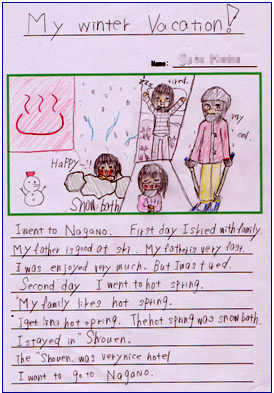 My winter Vacation!
Name:
tired.
very
cool.
Happy~!!
Snow bath
I went to Nagano. First day I skied with family.
My father is good at ski. My father is very fast.
I was enjoyed very much. But I was tired.
Second day I went to hot spring.
My family likes hot spring.
I get in a hot spring. The hot spring was snow bath.
I stayed in "Shouen.
The "Shouen. was very nice hotel
I want to go to Nagano.